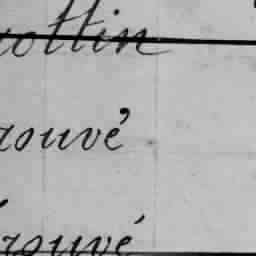 rottin
rouvé
rouvé